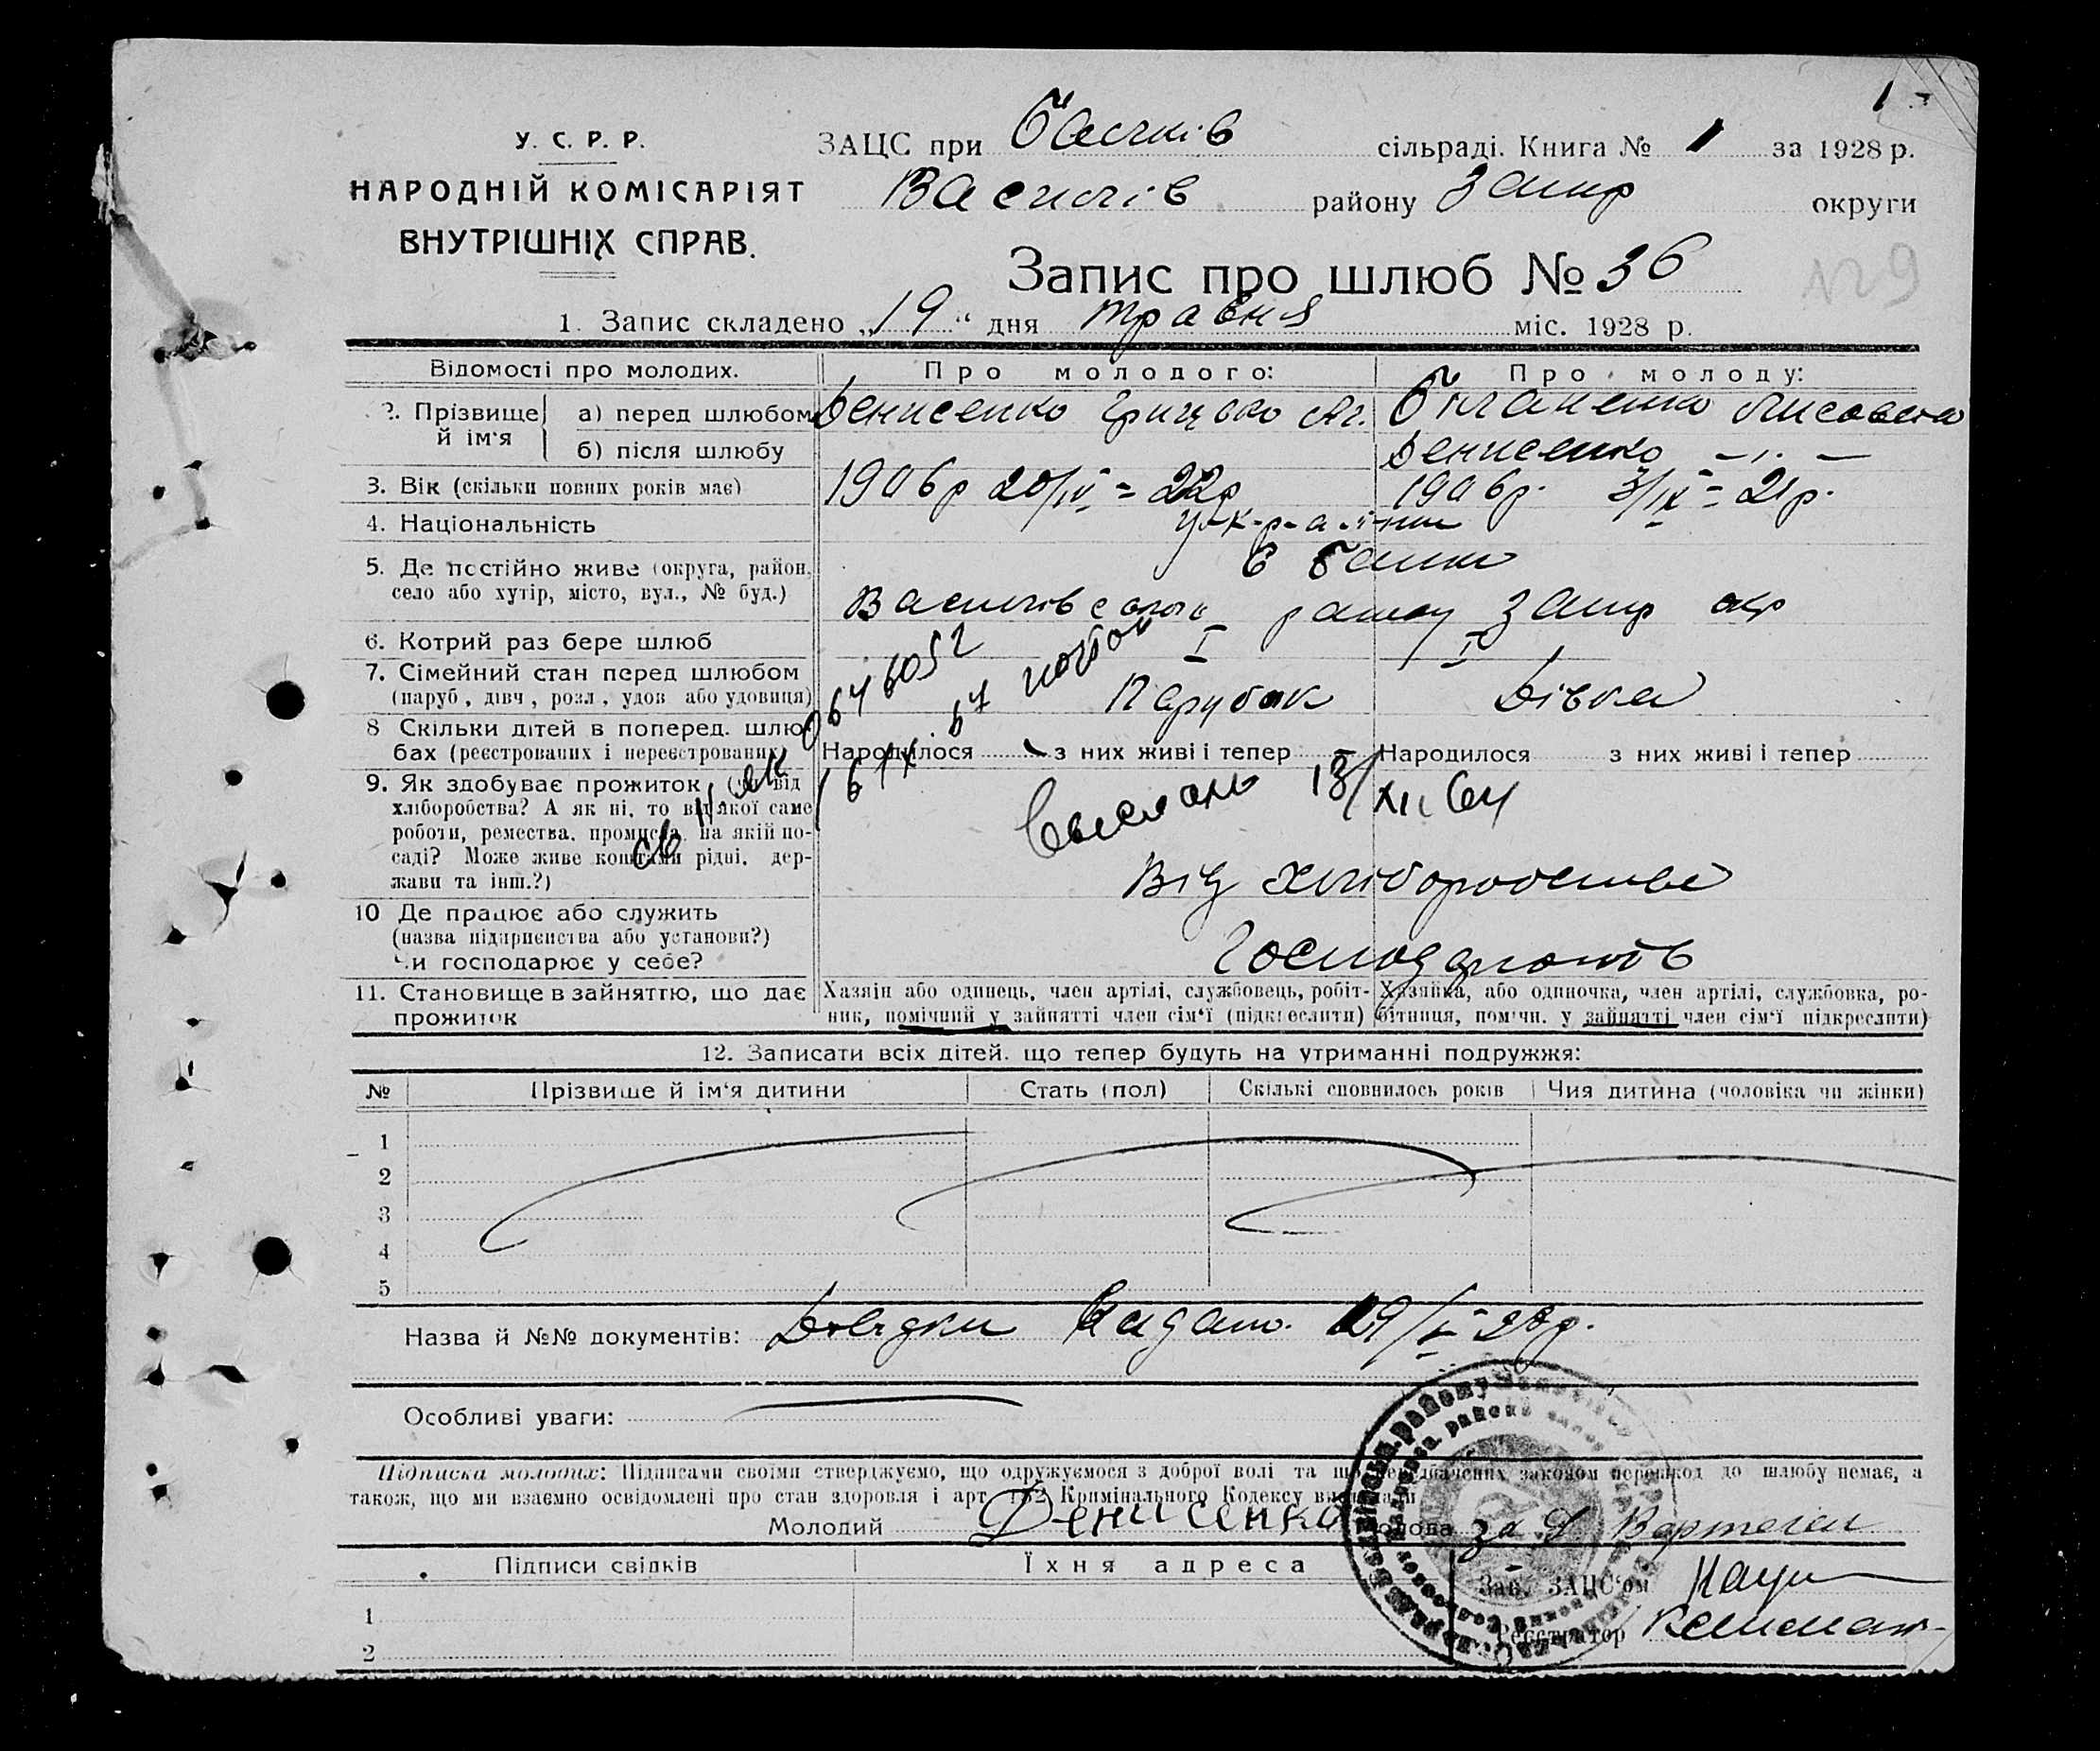 1
У. С. Р. Р.
НАРОДНІЙ КОМІСАРІЯТ
ВНУТРІШНІХ СПРАВ.
ЗАЦС при сільраді. Книга № 1 за 1928 р.
Василів району Запор округи
Запис про шлюб № 36
№ 9
1. Запис складено „19“ дня травня міс. 1928 р.
Відомості про молодих.
Про молодого:
Про молоду:
2. Прізвище й ім‘я
а) перед шлюбом
Денисенко Грицько
б) після шлюбу
Денисенко — „ —
3. Вік (скільки повних років має)
1906р 20/IV = 22р
1906р. 3/IX = 21р.
4. Національність
україн
5. Де постійно живе (округа, район,
село або хутір, місто, вул., № буд.)
Запор окр
6. Котрий раз бере шлюб
I
I
7. Сімейний стан перед шлюбом
(паруб., дівч., розл., удов. або удовиця)
Парубок
Дівка
8 Скільки дітей в поперед. шлю-
бах (реєстрованих і нереєстрованих)
Народилося з них живі і тепер —
Народилося з них живі і тепер
9. Як здобуває прожиток (чи від
хліборобства? А як ні, то від якої саме
роботи, ремества, промисла, на якій по-
саді? Може живе коштами рідні, дер-
жави та інш.?)
Выслано 18/XII 64
Від хліборобства
10 Де працює або служить
(назва підприємства або установи?)
Чи господарює у себе?
Господарюють
11. Становище в зайняттю, що дає
прожиток
Хазяін або одинець, член артілі, службовець, робіт-
ник, помічний у зайнятті член сім‘ї (підкреслити)
Хазяйка, або одиночка, член артілі, службовка, ро-
бітниця, помічн. у зайнятті член сім‘ї підкреслити)
12. Записати всіх дітей, що тепер будуть на утриманні подружжя:
№
Прізвище й ім‘я дитини
Стать (пол)
Скількі сповнилось років
Чия дитина (чоловіка чи жінки)
1
2
3
4
5
Назва й №№ документів: 19/V 28р.
Особливі уваги:
Підписка молодих: Підписами своїми стверджуємо, що одружуємося з доброї волі та що передбачених законом перешкод до шлюбу немає, а
також, що ми взаємно освідомлені про стан здоровля і арт. 152 Кримінального Кодексу
Молодий Денисенко
Молода за
Підписи свідків
Їхня адреса
Зав. ЗАЦС‘ом
1
Реєстратор
2